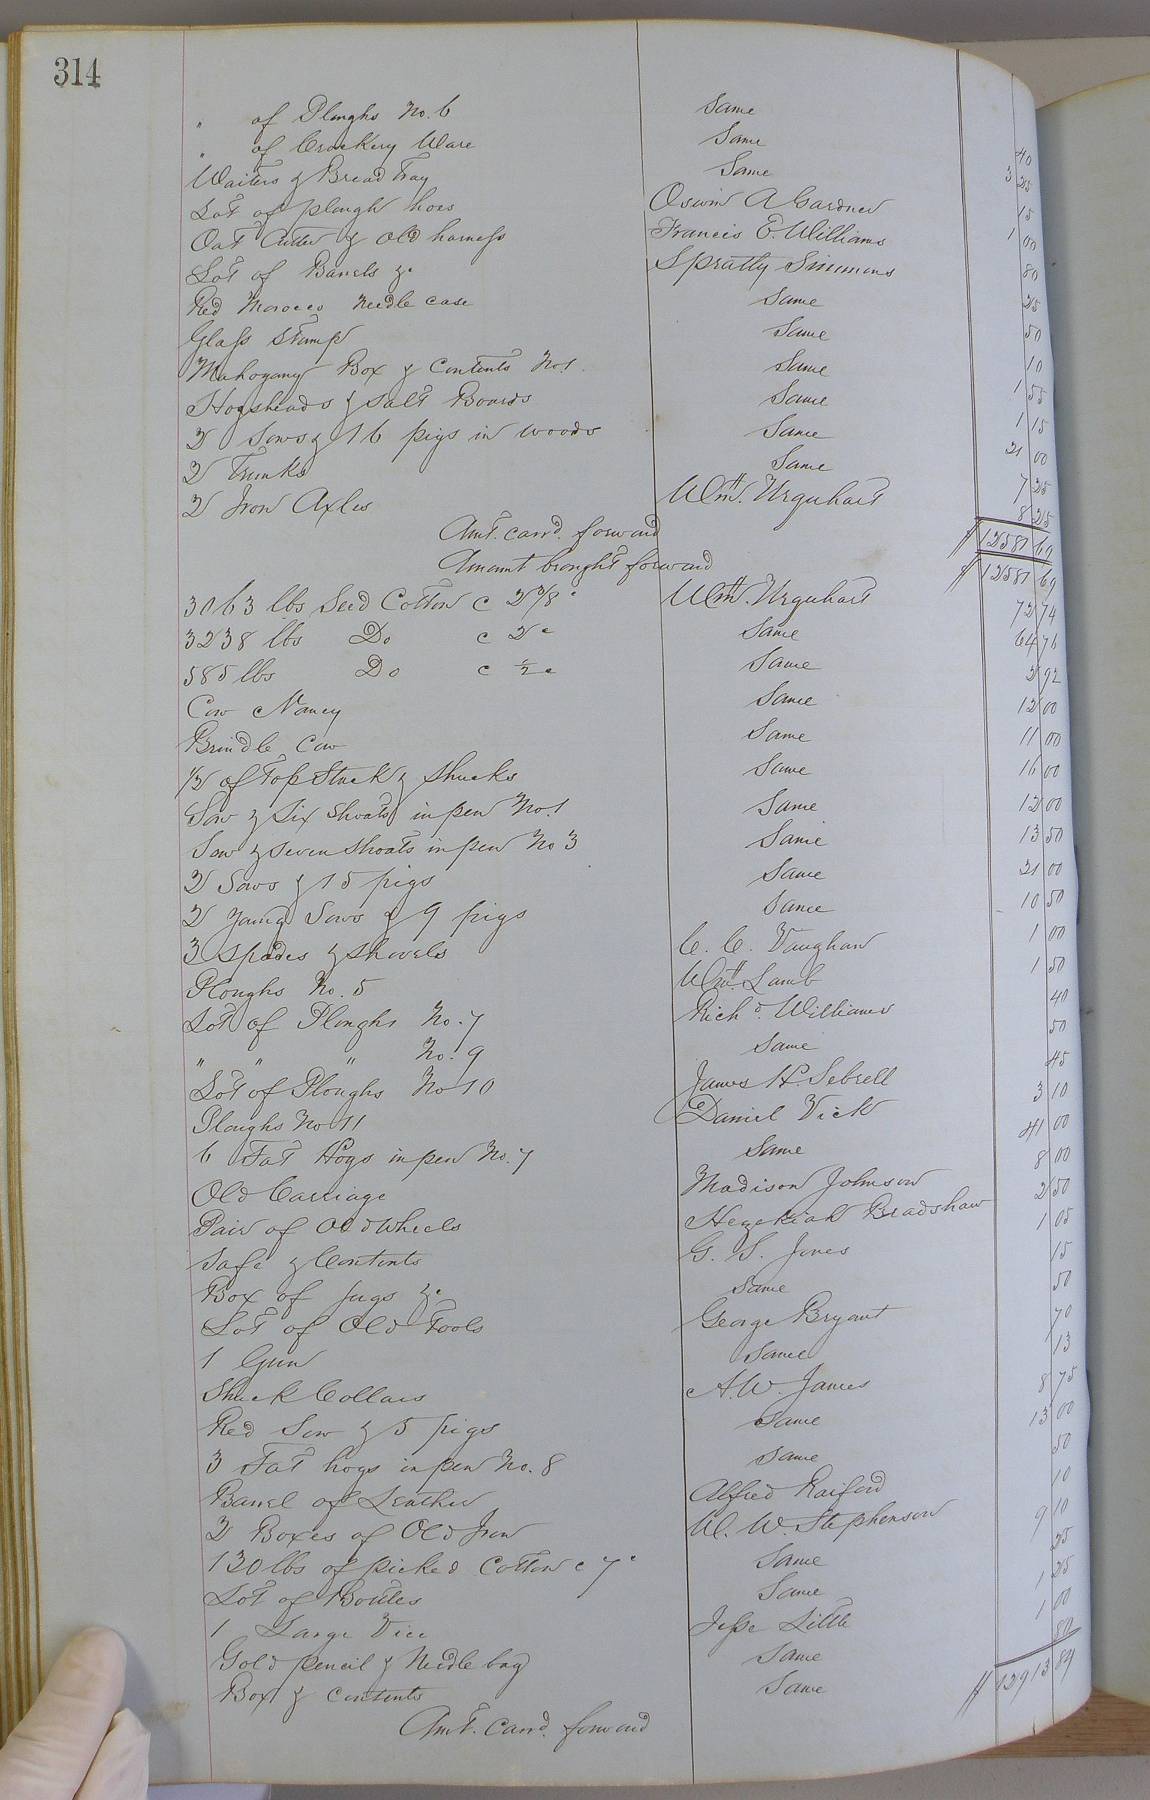 314
" of Ploughs No. 6 Same 40
" of Crockery Ware Same 3 25
Waiters & Bread Tray Same 15
Lot of plough hoes Oswin A Gardner 1 00
Oat Cutter & old harness Francis E. Williams 80
Lot of Barrels &c Spratly Simmons 25
Red Morocco Needle case Same 50
Glass Stamp Same 10
Mahogany Box & Contents No 1. Same 1 55
Hogsheads & Salt Boards Same 1 15
2 Sows & 16 pigs in woods Same 21 00
2 Trunks Same 7 25
2 Iron Axles Wm. Urquhart 8 25
Amt. carrd. forward $ 12581 69
Amount brought forward $ 12581 69
3063 lbs Seed Cotton c 2 3/8 c Wm. Urquhart 72 74
3238 lbs Do c 2 c Same 64 76
585 lbs Do c 1/2 c Same 2 92
Cow Nancy Same 12 00
Brindle Cow Same 11 00
1/2 of Top Stack & shucks Same 16 00
Sow & Six Shoats in pen No. 1 Same 12 00
Sow & seven shoats in pen No 3 Same 13 50
2 Sows & 15 pigs Same 21 00
2 young Sows & 9 pigs Same 10 50
3 Spades & shovels C. C. Vaughan 1 00
Ploughs No. 5 Wm. Lamb 1 50
Lot of Ploughs No. 7 Richd. Williams 40
" " " No. 9 Same 50
Lot of Ploughs No 10 James H. Sebrell 45
Ploughs No 11 Daniel Vick 3 10
6 Fat Hogs in pen No. 7 Same 41 00
Old Carriage Madison Johnson 8 00
Pair of Old Wheels Hezekiah Bradshaw 2 50
Safe & Contents G. S. Jones 1 05
Box of Jugs &c Same 15
Lot of Old Tools George Bryant 50
1 Gun Same 70
Shuck Collars A. W. James 13
Red Sow & 5 pigs Same 8 75
3 Fat hogs in pen No. 8 Same 13 00
Barrel of Leather Alfred Raiford 50
2 Boxes of Old Iron W. W. Stephenson 10
130 lbs of picked Cotton c 7 c Same 9 10
Lot of Bottles Same 25
1 Large Vice Jesse Little 1 25
Gold pencil & Needle bag Same 1 00
Box & contents Same 80
Amt. carrd. forward $ 12913 89